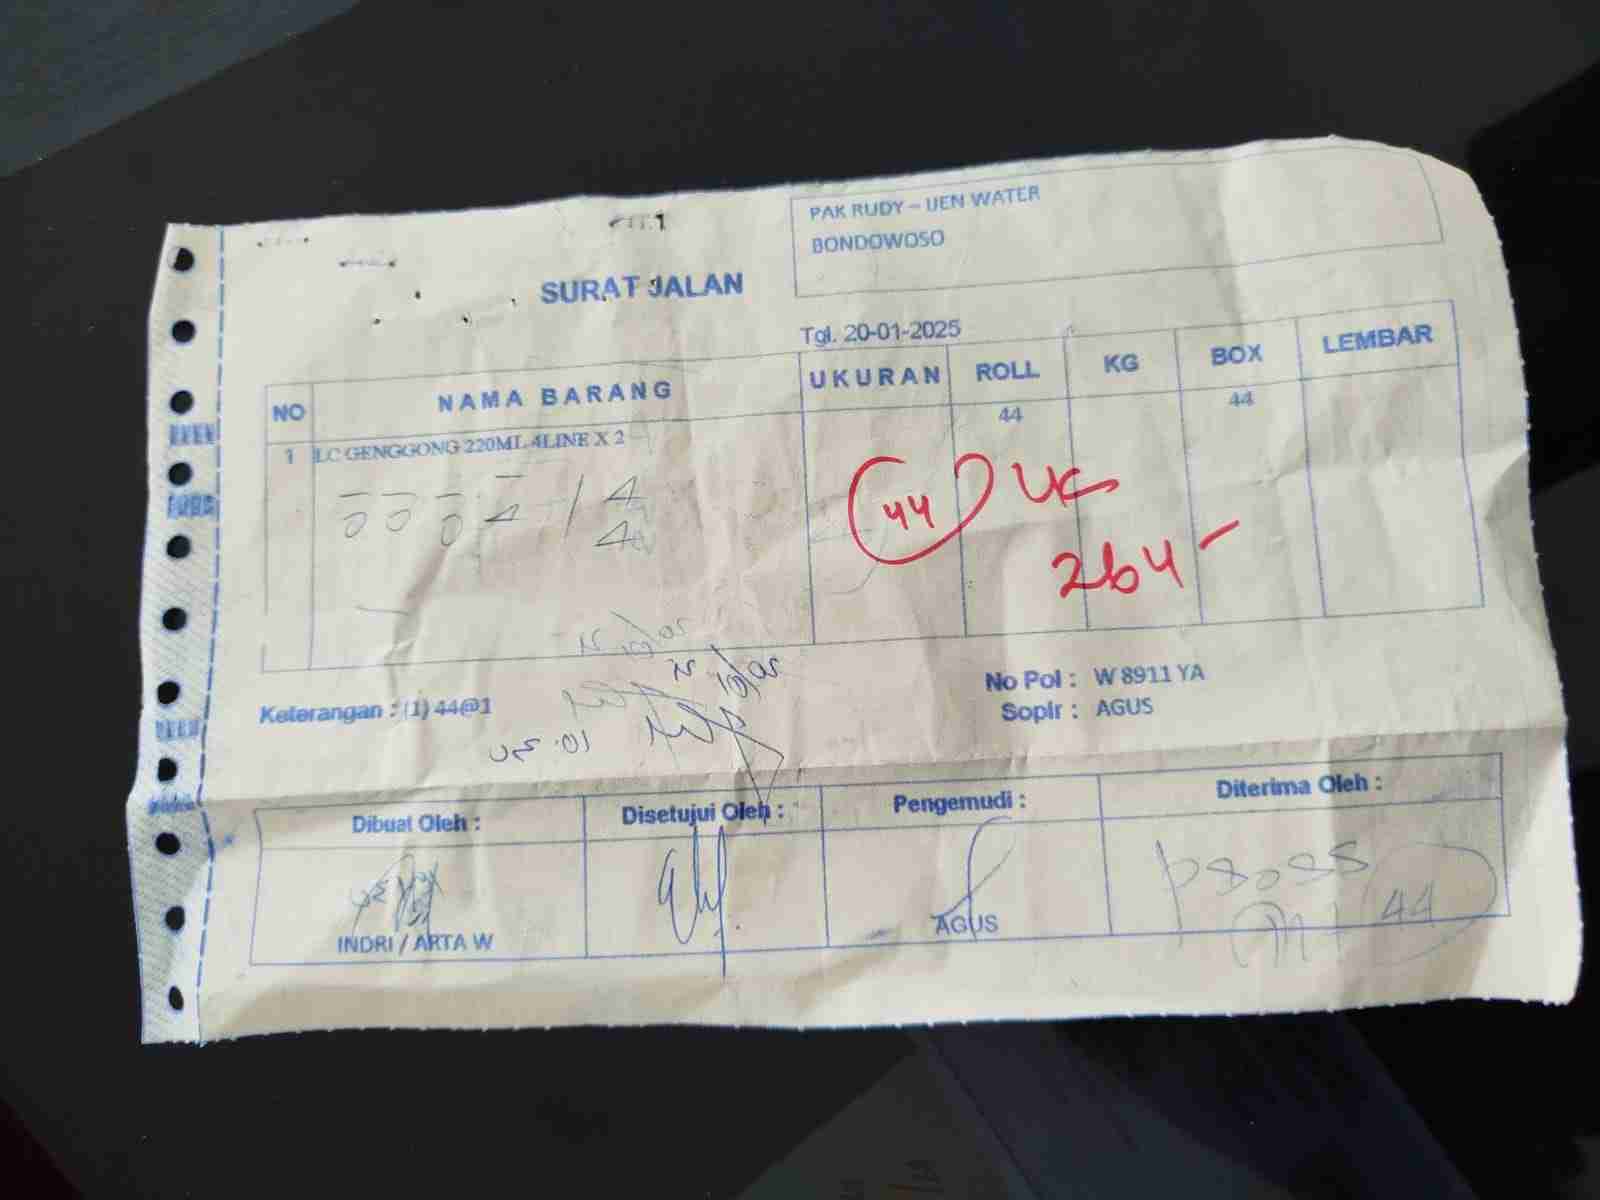 PAK RUDY – IJEN WATER
BONDOWOSO
SURAT JALAN
Tgl. 20-01-2025
NO NAMA BARANG UKURAN ROLL KG BOX LEMBAR
1 LC GENGGONG 220ML 4LINE X 2 44 44
44
264 -
Keterangan : (1) 44@1
No Pol : W 8911 YA
Sopir : AGUS
10.30
Dibuat Oleh : Disetujui Oleh : Pengemudi : Diterima Oleh :
44
INDRI / ARTA W AGUS